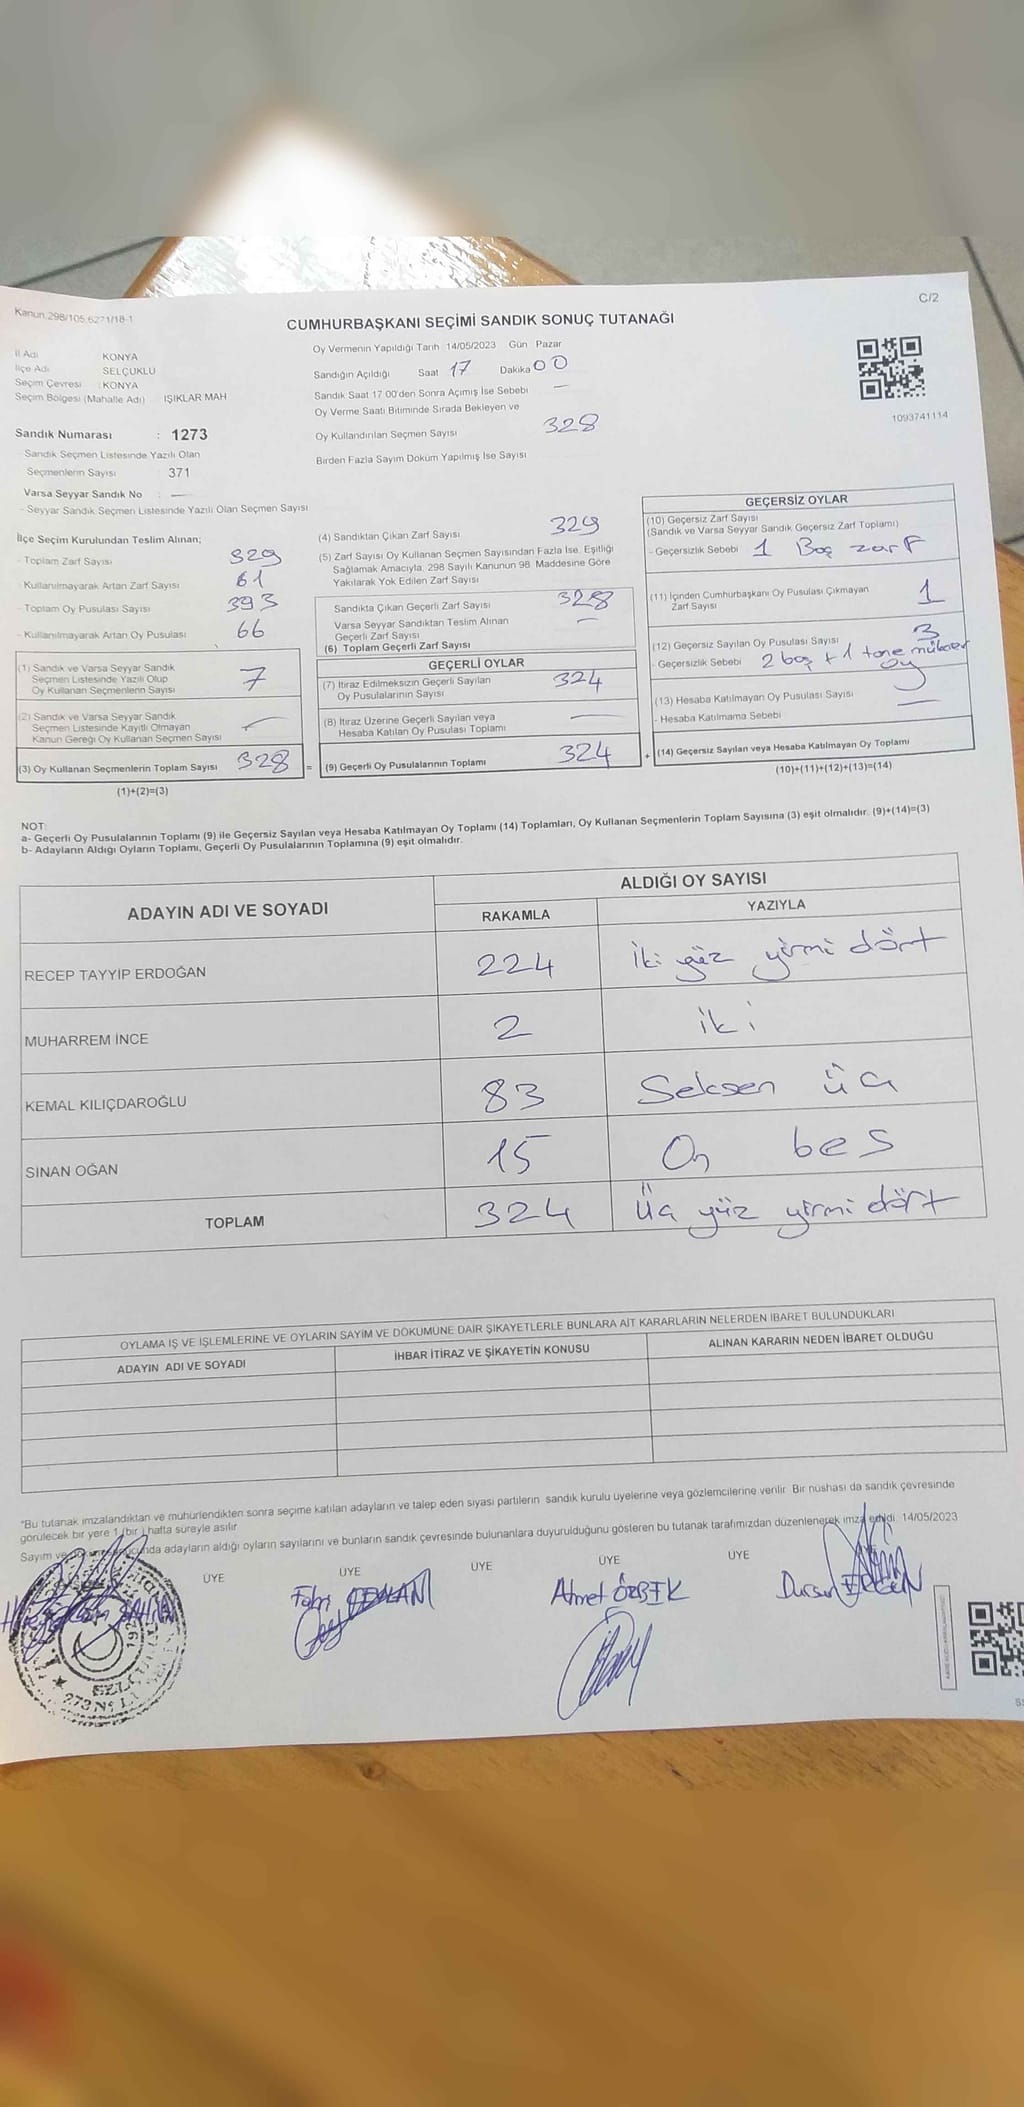 Kanun.298/105.6271/18-1
C/2
CUMHURBAŞKANI SEÇİMİ SANDIK SONUÇ TUTANAĞI
İl Adı KONYA
İlçe Adı SELÇUKLU
Seçim Çevresi : KONYA
Seçim Bölgesi (Mahalle Adı) IŞIKLAR MAH
Sandık Numarası : 1273
Sandık Seçmen Listesinde Yazılı Olan
Seçmenlerin Sayısı 371
Varsa Seyyar Sandık No : —
- Seyyar Sandık Seçmen Listesinde Yazılı Olan Seçmen Sayısı
Oy Vermenin Yapıldığı Tarih 14/05/2023 Gün Pazar
Sandığın Açıldığı Saat 17 Dakika 00
Sandık Saat 17 00'den Sonra Açımış İse Sebebi —
Oy Verme Saati Bitiminde Sırada Bekleyen ve
Oy Kullandırılan Seçmen Sayısı 328
Birden Fazla Sayım Döküm Yapılmış İse Sayısı
1093741114
İlçe Seçim Kurulundan Teslim Alınan;
- Toplam Zarf Sayısı 329
- Kullanılmayarak Artan Zarf Sayısı 61
- Toplam Oy Pusulası Sayısı 393
- Kullanılmayarak Artan Oy Pusulası 66
(1) Sandık ve Varsa Seyyar Sandık
Seçmen Listesinde Yazılı Olup
Oy Kullanan Seçmenlerin Sayısı 7
(2) Sandık ve Varsa Seyyar Sandık
Seçmen Listesinde Kayıtlı Olmayan
Kanun Gereği Oy Kullanan Seçmen Sayısı —
(3) Oy Kullanan Seçmenlerin Toplam Sayısı 328 =
(1)+(2)=(3)
(4) Sandıktan Çıkan Zarf Sayısı 329
(5) Zarf Sayısı Oy Kullanan Seçmen Sayısından Fazla İse, Eşitliği
Sağlamak Amacıyla, 298 Sayılı Kanunun 98. Maddesine Göre
Yakılarak Yok Edilen Zarf Sayısı
Sandıkta Çıkan Geçerli Zarf Sayısı 328
Varsa Seyyar Sandıktan Teslim Alınan
Geçerli Zarf Sayısı —
(6) Toplam Geçerli Zarf Sayısı
GEÇERLİ OYLAR
(7) İtiraz Edilmeksizin Geçerli Sayılan
Oy Pusulalarının Sayısı 324
(8) İtiraz Üzerine Geçerli Sayılan veya
Hesaba Katılan Oy Pusulası Toplamı —
(9) Geçerli Oy Pusulalarının Toplamı 324 +
GEÇERSİZ OYLAR
(10) Geçersiz Zarf Sayısı
(Sandık ve Varsa Seyyar Sandık Geçersiz Zarf Toplamı)
- Geçersizlik Sebebi 1 Boş zarf
(11) İçinden Cumhurbaşkanı Oy Pusulası Çıkmayan
Zarf Sayısı 1
(12) Geçersiz Sayılan Oy Pusulası Sayısı 3
- Geçersizlik Sebebi 2 boş + 1 tane
oy
(13) Hesaba Katılmayan Oy Pusulası Sayısı —
- Hesaba Katılmama Sebebi
(14) Geçersiz Sayılan veya Hesaba Katılmayan Oy Toplamı
(10)+(11)+(12)+(13)=(14)
NOT:
a- Geçerli Oy Pusulalarının Toplamı (9) ile Geçersiz Sayılan veya Hesaba Katılmayan Oy Toplamı (14) Toplamları, Oy Kullanan Seçmenlerin Toplam Sayısına (3) eşit olmalıdır. (9)+(14)=(3)
b- Adayların Aldığı Oyların Toplamı, Geçerli Oy Pusulalarının Toplamına (9) eşit olmalıdır.
ADAYIN ADI VE SOYADI
ALDIĞI OY SAYISI
RAKAMLA YAZIYLA
RECEP TAYYIP ERDOĞAN 224 iki yüz yirmi dört
MUHARREM İNCE 2 iki
KEMAL KILIÇDAROĞLU 83 Seksen üç
SİNAN OĞAN 15 On beş
TOPLAM 324 Üç yüz yirmi dört
OYLAMA İŞ VE İŞLEMLERİNE VE OYLARIN SAYIM VE DÖKÜMÜNE DAİR ŞİKAYETLERLE BUNLARA AİT KARARLARIN NELERDEN İBARET BULUNDUKLARI
ADAYIN ADI VE SOYADI İHBAR İTİRAZ VE ŞİKAYETİN KONUSU ALINAN KARARIN NEDEN İBARET OLDUĞU
"Bu tutanak imzalandıktan ve mühürlendikten sonra seçime katılan adayların ve talep eden siyasi partilerin sandık kurulu üyelerine veya gözlemcilerine verilir Bir nüshası da sandık çevresinde
görülecek bir yere 1 (bir ) hafta süreyle asılır
Sayım ve adayların aldığı oyların sayılarını ve bunların sandık çevresinde bulunanlara duyurulduğunu gösteren bu tutanak tarafımızdan düzenlenerek imza edildi. 14/05/2023
ÜYE ÜYE ÜYE ÜYE ÜYE
Ahmet ÖZBEK
Dursun
SELÇUKLU